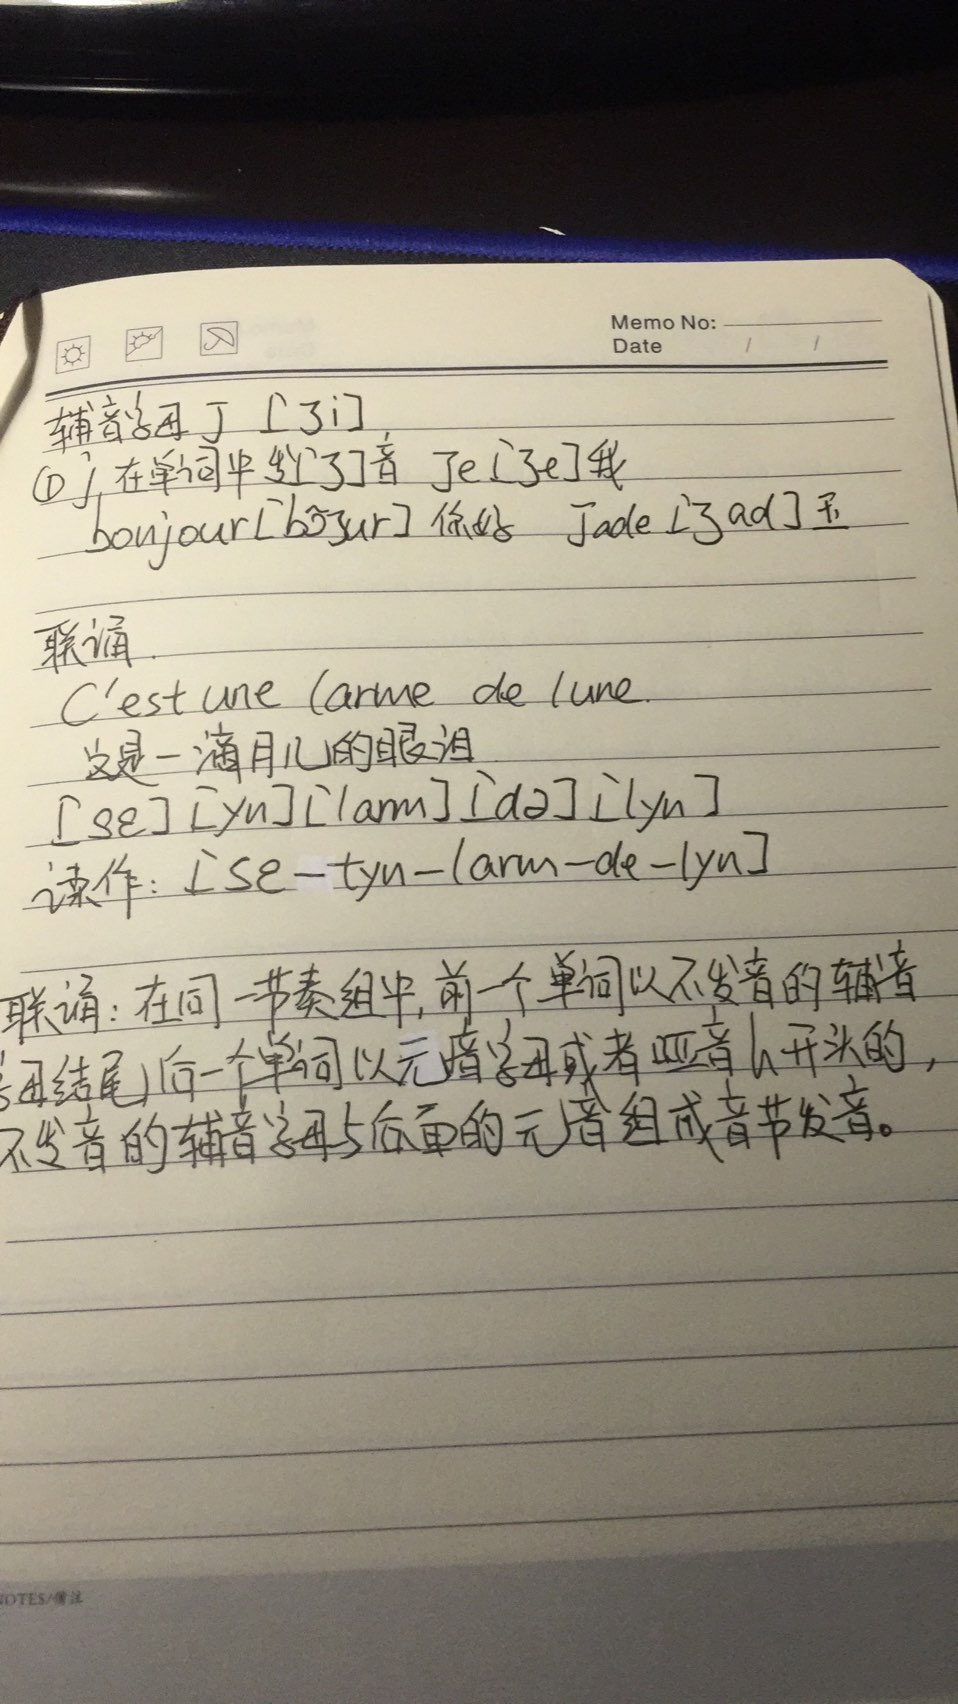 Memo No:
Date / /
辅音字母 J [ʒi]
① j 在单词中发[ʒ]音 Je [ʒe] 我
bonjour [bɔ̃ʒur] 你好 Jade [ʒad] 玉
联诵
C'est une larme de lune.
这是一滴月儿的眼泪
[sε] [yn] [larm] [də] [lyn]
读作: [sε-tyn-larm-de-lyn]
联诵: 在同一节奏组中, 前一个单词以不发音的辅音
字母结尾, 后一个单词以元音字母或者哑音h开头的,
不发音的辅音字母与后面的元音组成音节发音。
NOTES/备注